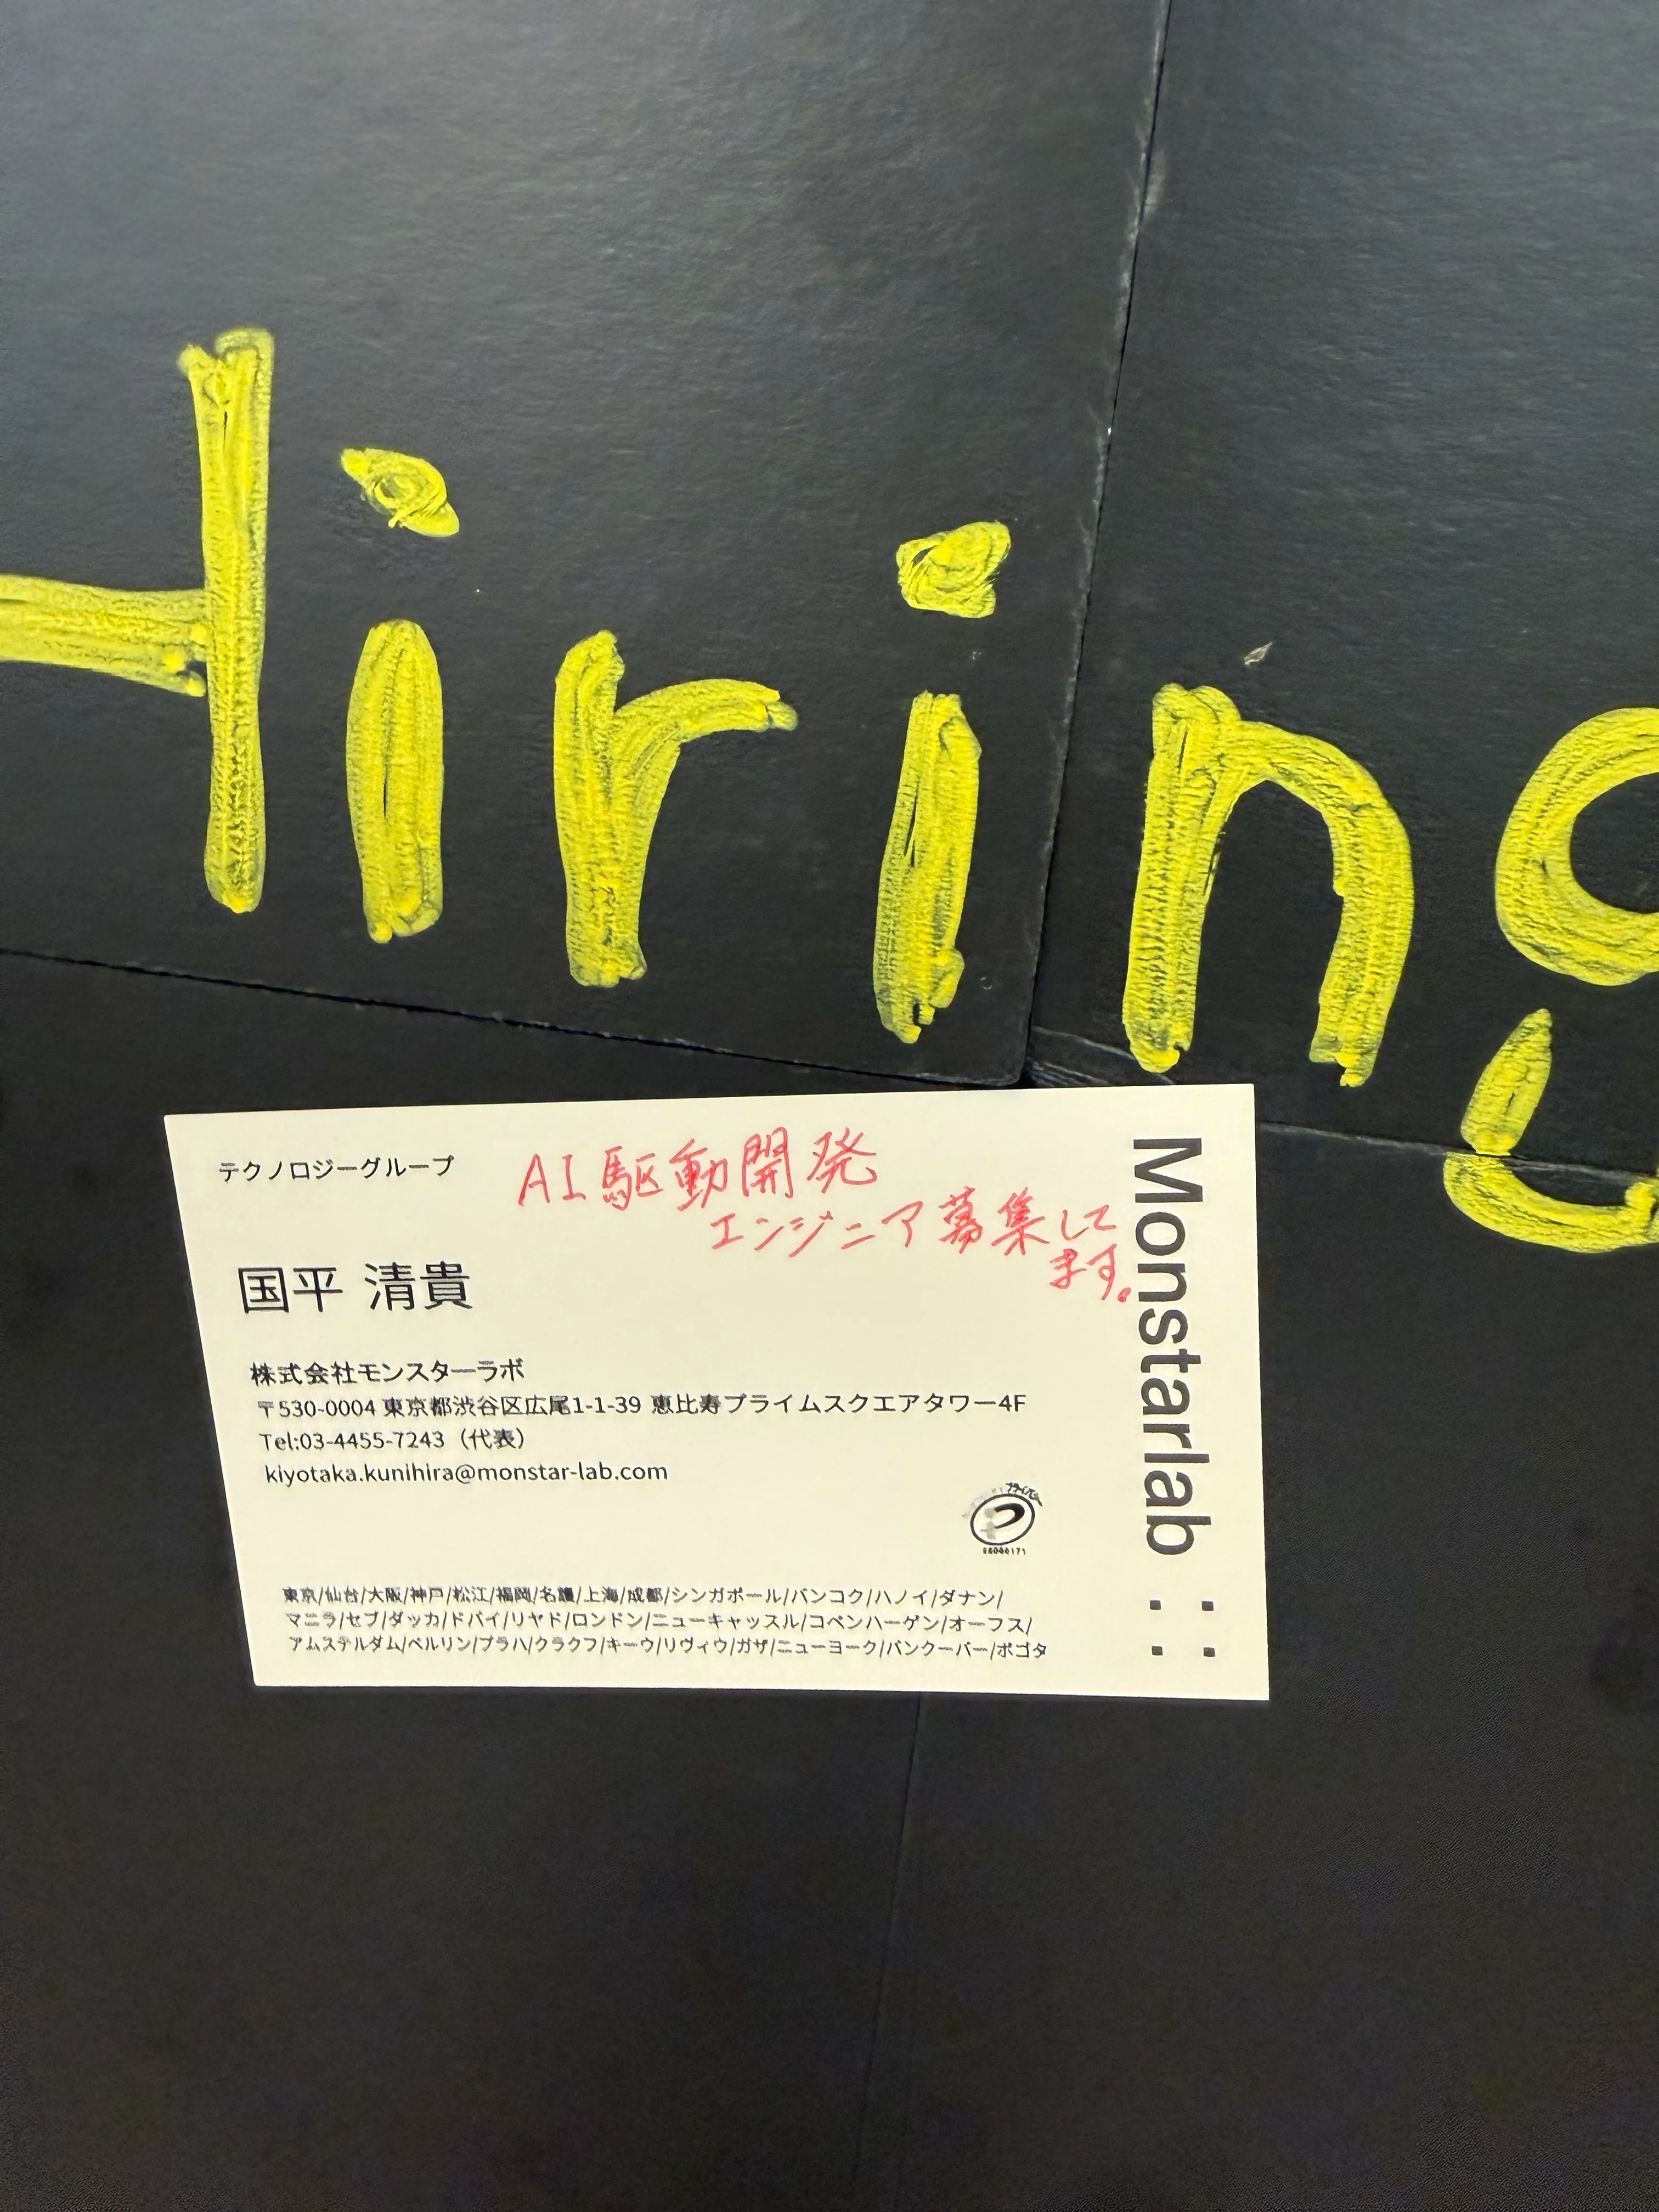 Hiring
テクノロジーグループ
AI駆動開発
エンジニア募集して
ます。
国平 清貴
株式会社モンスターラボ
〒530-0004 東京都渋谷区広尾1-1-39 恵比寿プライムスクエアタワー4F
Tel:03-4455-7243（代表）
kiyotaka.kunihira@monstar-lab.com
東京/仙台/大阪/神戸/松江/福岡/上海/成都/シンガポール/バンコク/ハノイ/ダナン/
マニラ/セブ/ダッカ/ドバイ/リヤド/ロンドン/ニューキャッスル/コペンハーゲン/オーフス/
アムステルダム/ベルリン/プラハ/クラクフ/キーウ/リヴィウ/ガザ/ニューヨーク/バンクーバー/ボゴタ
Monstarlab